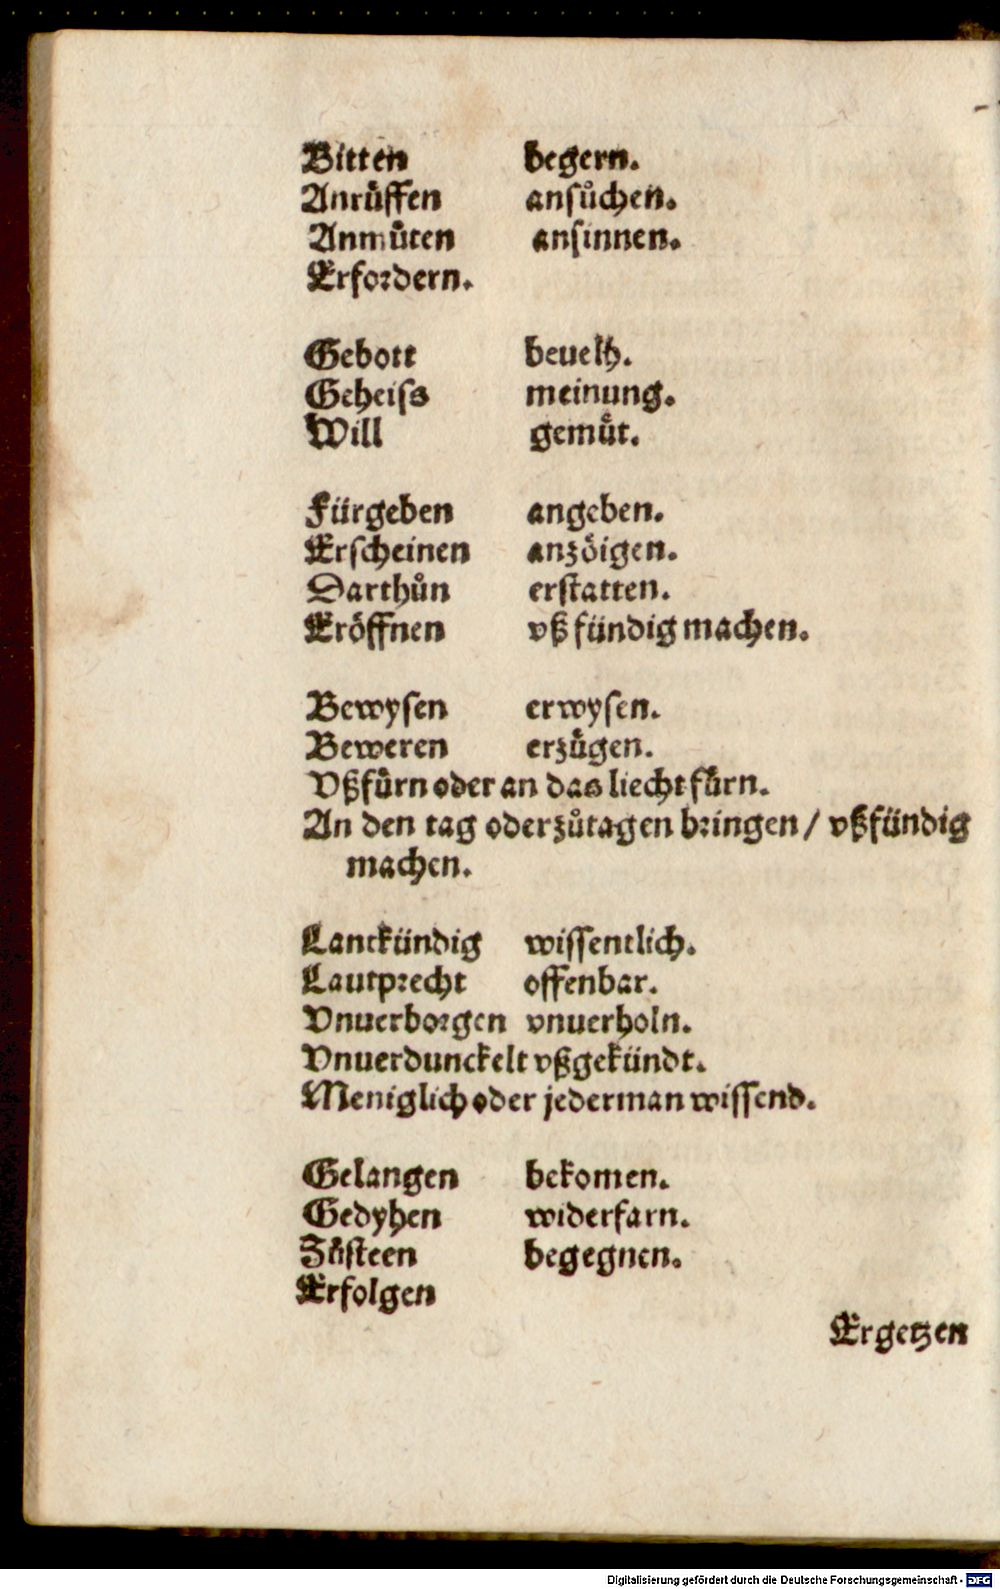 Bitten begern.
Anrůffen ansůchen.
Anmůten ansinnen.
Erfordern.
Gebott beuelh.
Geheiſs meinung.
Will gemůt.
Fürgeben angeben.
Erſcheinen anzöigen.
Darthůn erſtatten.
Eröffnen vß fündig machen.
Bewyſen erwyſen.
Beweren erzůgen.
Vßfůrn oder an das liecht fůrn.
An den tag oder zůtagen bringen / vßfündig
machen.
Lantkündig wiſſentlich.
Lautprecht offenbar.
Vnuerborgen vnuerholn.
Vnuerdunckelt vßgekündt.
Meniglich oder jederman wiſſend.
Gelangen bekomen.
Gedyhen widerfarn.
Zůſteen begegnen.
Erfolgen
Ergetzen
Digitalisierung gefördert durch die Deutsche Forschungsgemeinschaft - DFG